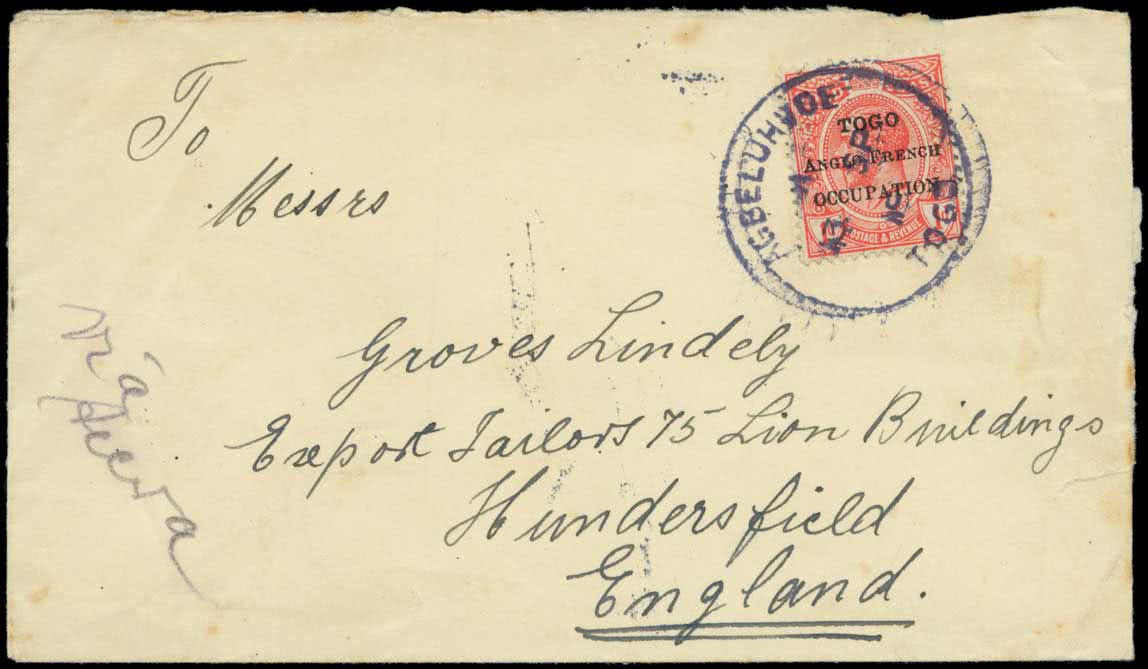 To
Messrs
Groves Lindely
Export Tailors 75 Lion Buildings
Hundersfield
England.
via
TOGO
ANGLO-FRENCH
OCCUPATION
POSTAGE & REVENUE
AGBELUHVOE
TOGO